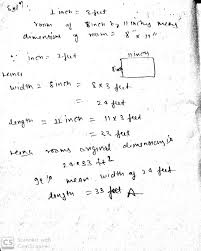 Solⁿ
1 inch = 3 feet
room of 8 inch by 11 inches means
dimensions of room = 8" × 11"
∵ inch = 3 feet
11 inch
8 inch
Hence
width = 8 inch = 8 × 3 feet
= 24 feet
length = 11 inch = 11 × 3 feet
= 33 feet
Hence rooms original dimensions is
24 × 33 ft²
It is mean width of 24 feet
length = 33 feet A
CS
Scanned with
CamScanner